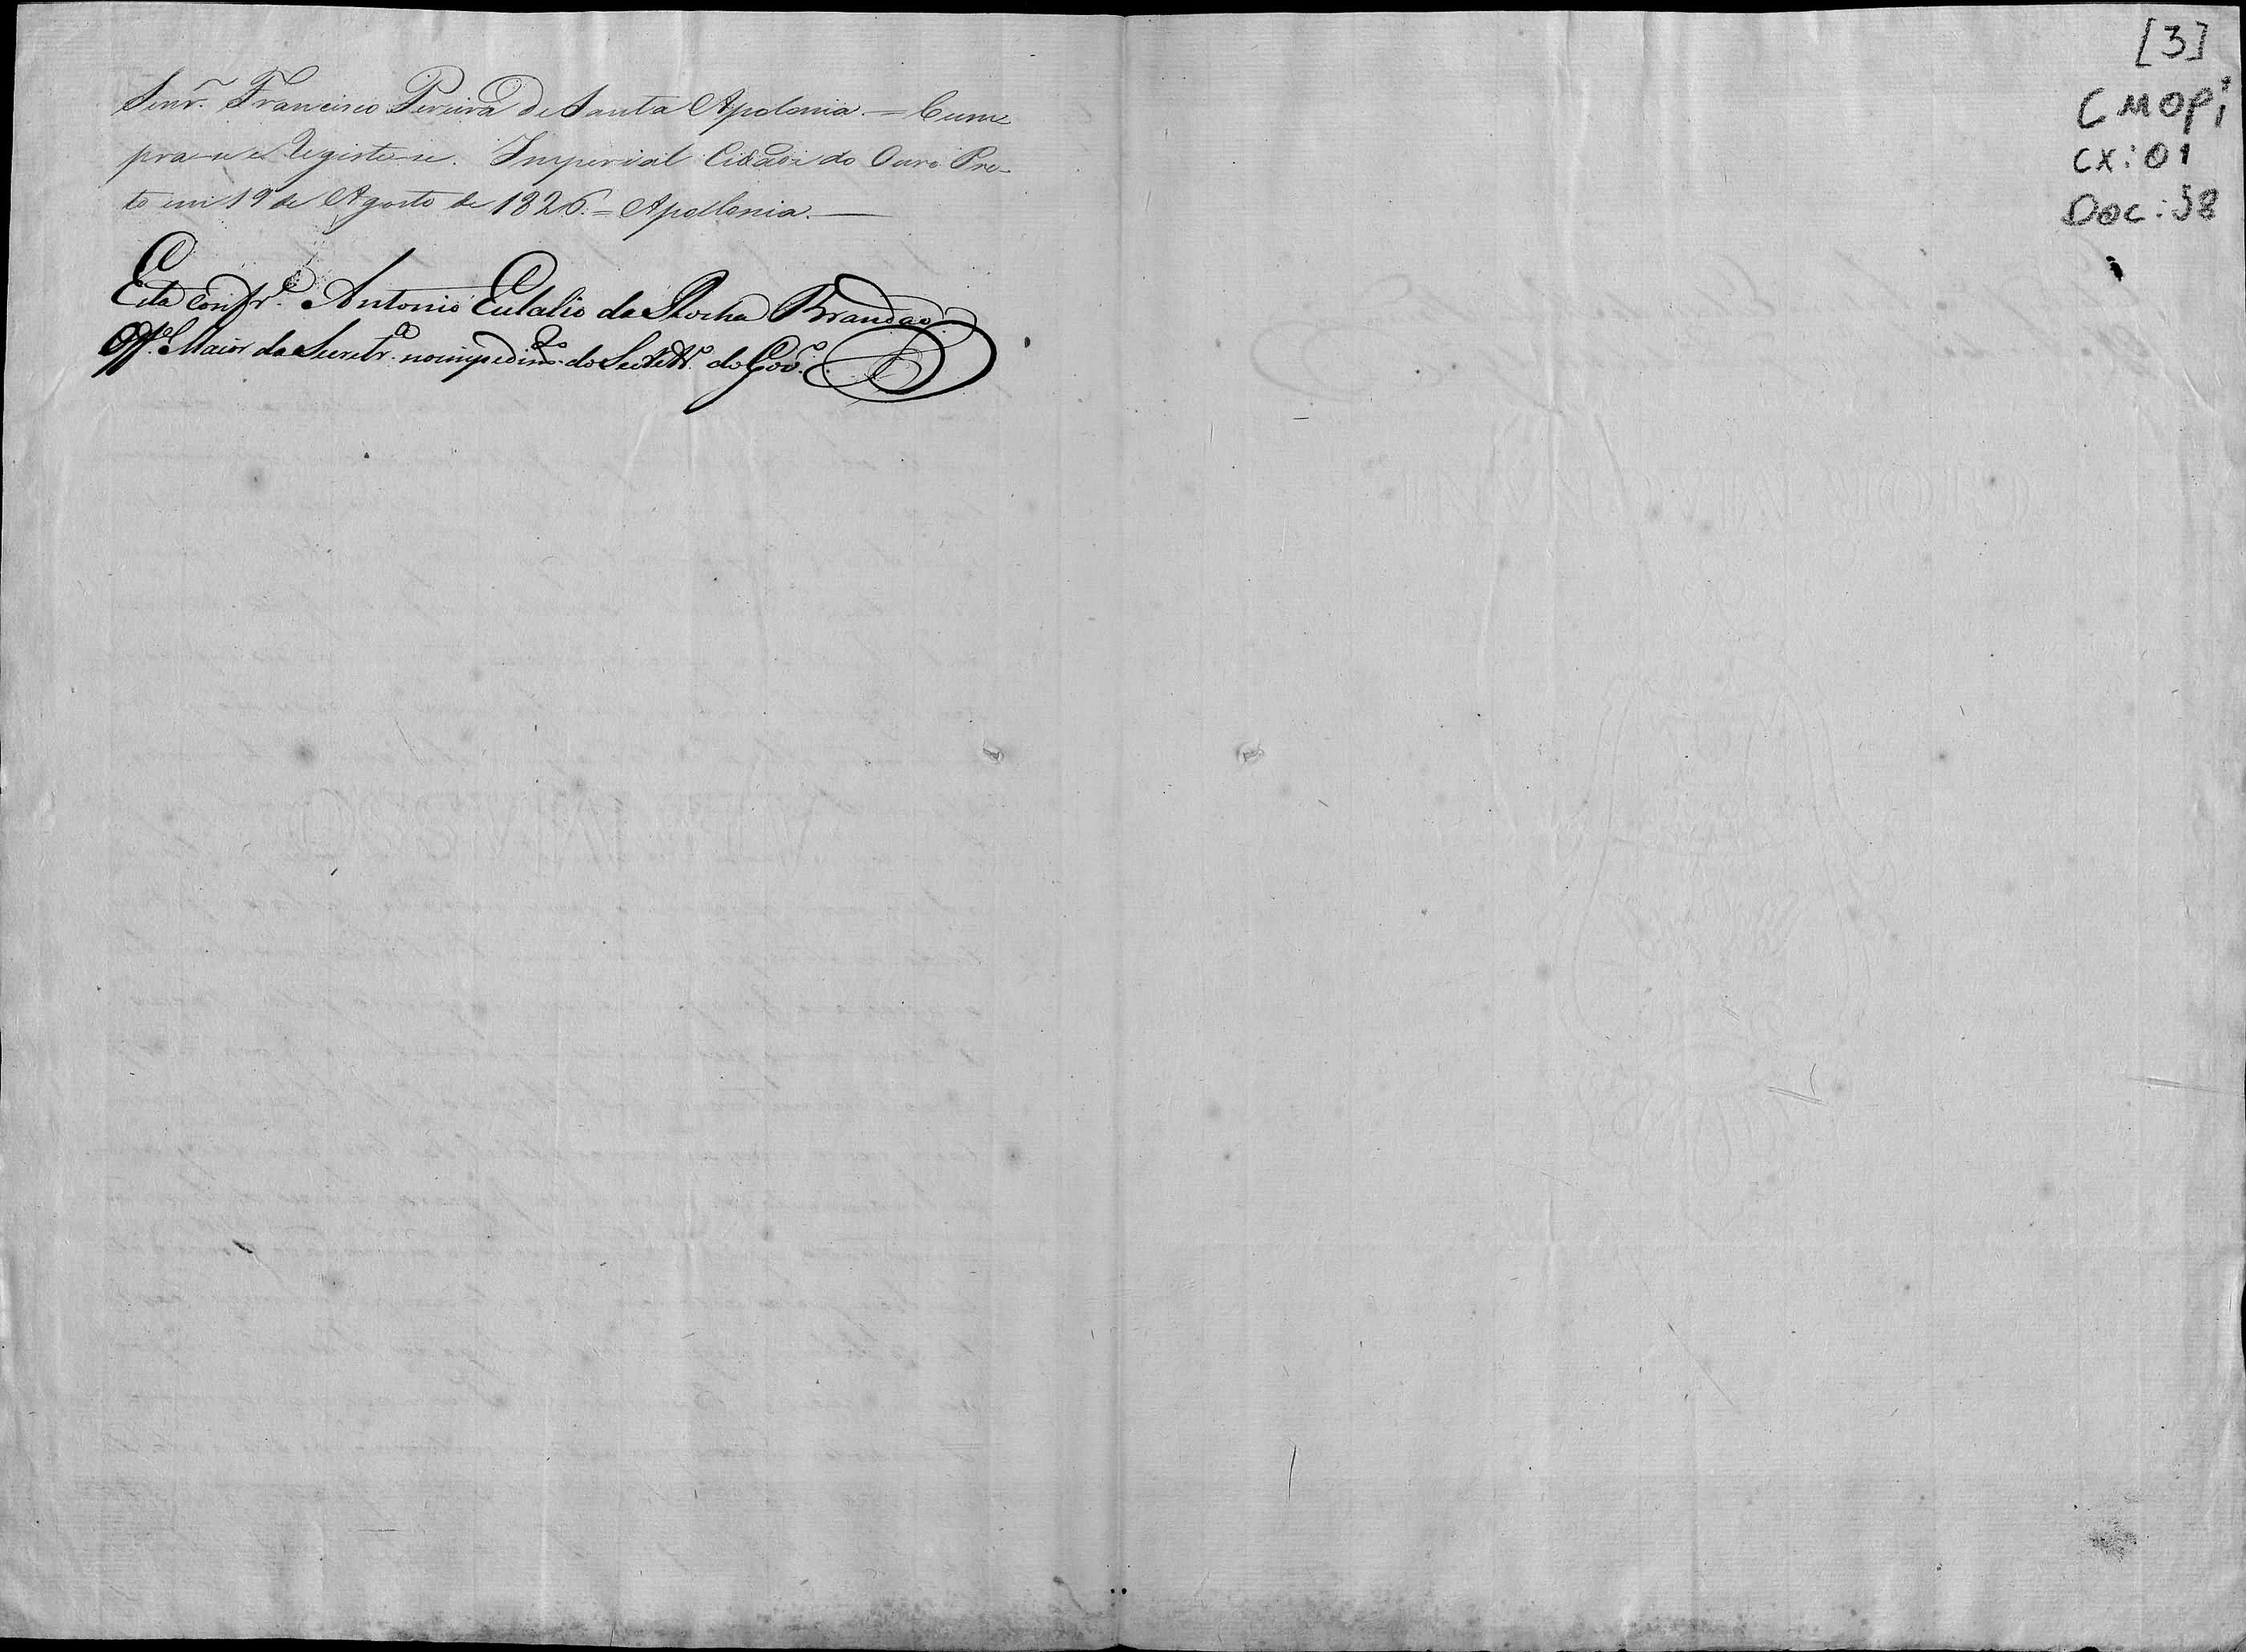 Senr. Francisco Pereira de Santa Apolonia. = Cum-
pra-se e Registe-se. Imperial Cidade do Ouro Pre-
to em 19 de Agosto de 1826. = Apollonia.
Está confr.e Antonio Eutalio da Rocha Brandão
Off.al Maior da Secretr.a no impedim.to do Secretr.o do Gov.o
[3]
CMOPi
CX: 01
Doc: 58